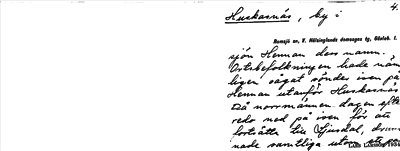 4.
Huskasnäs, by i
Ramsjö sn, V. Hälsinglands domsagas tg, Gävleb. l.
sjön Hennan dess namn.
Ortsbefolkningen hade näm
ligen sågat sönder isen på
Hennan utanför Huskasnäs
Då norrmännen dagen efte
redo ned på isen för att
fortsätta till Ljusdal, drunk
nade samtliga utom